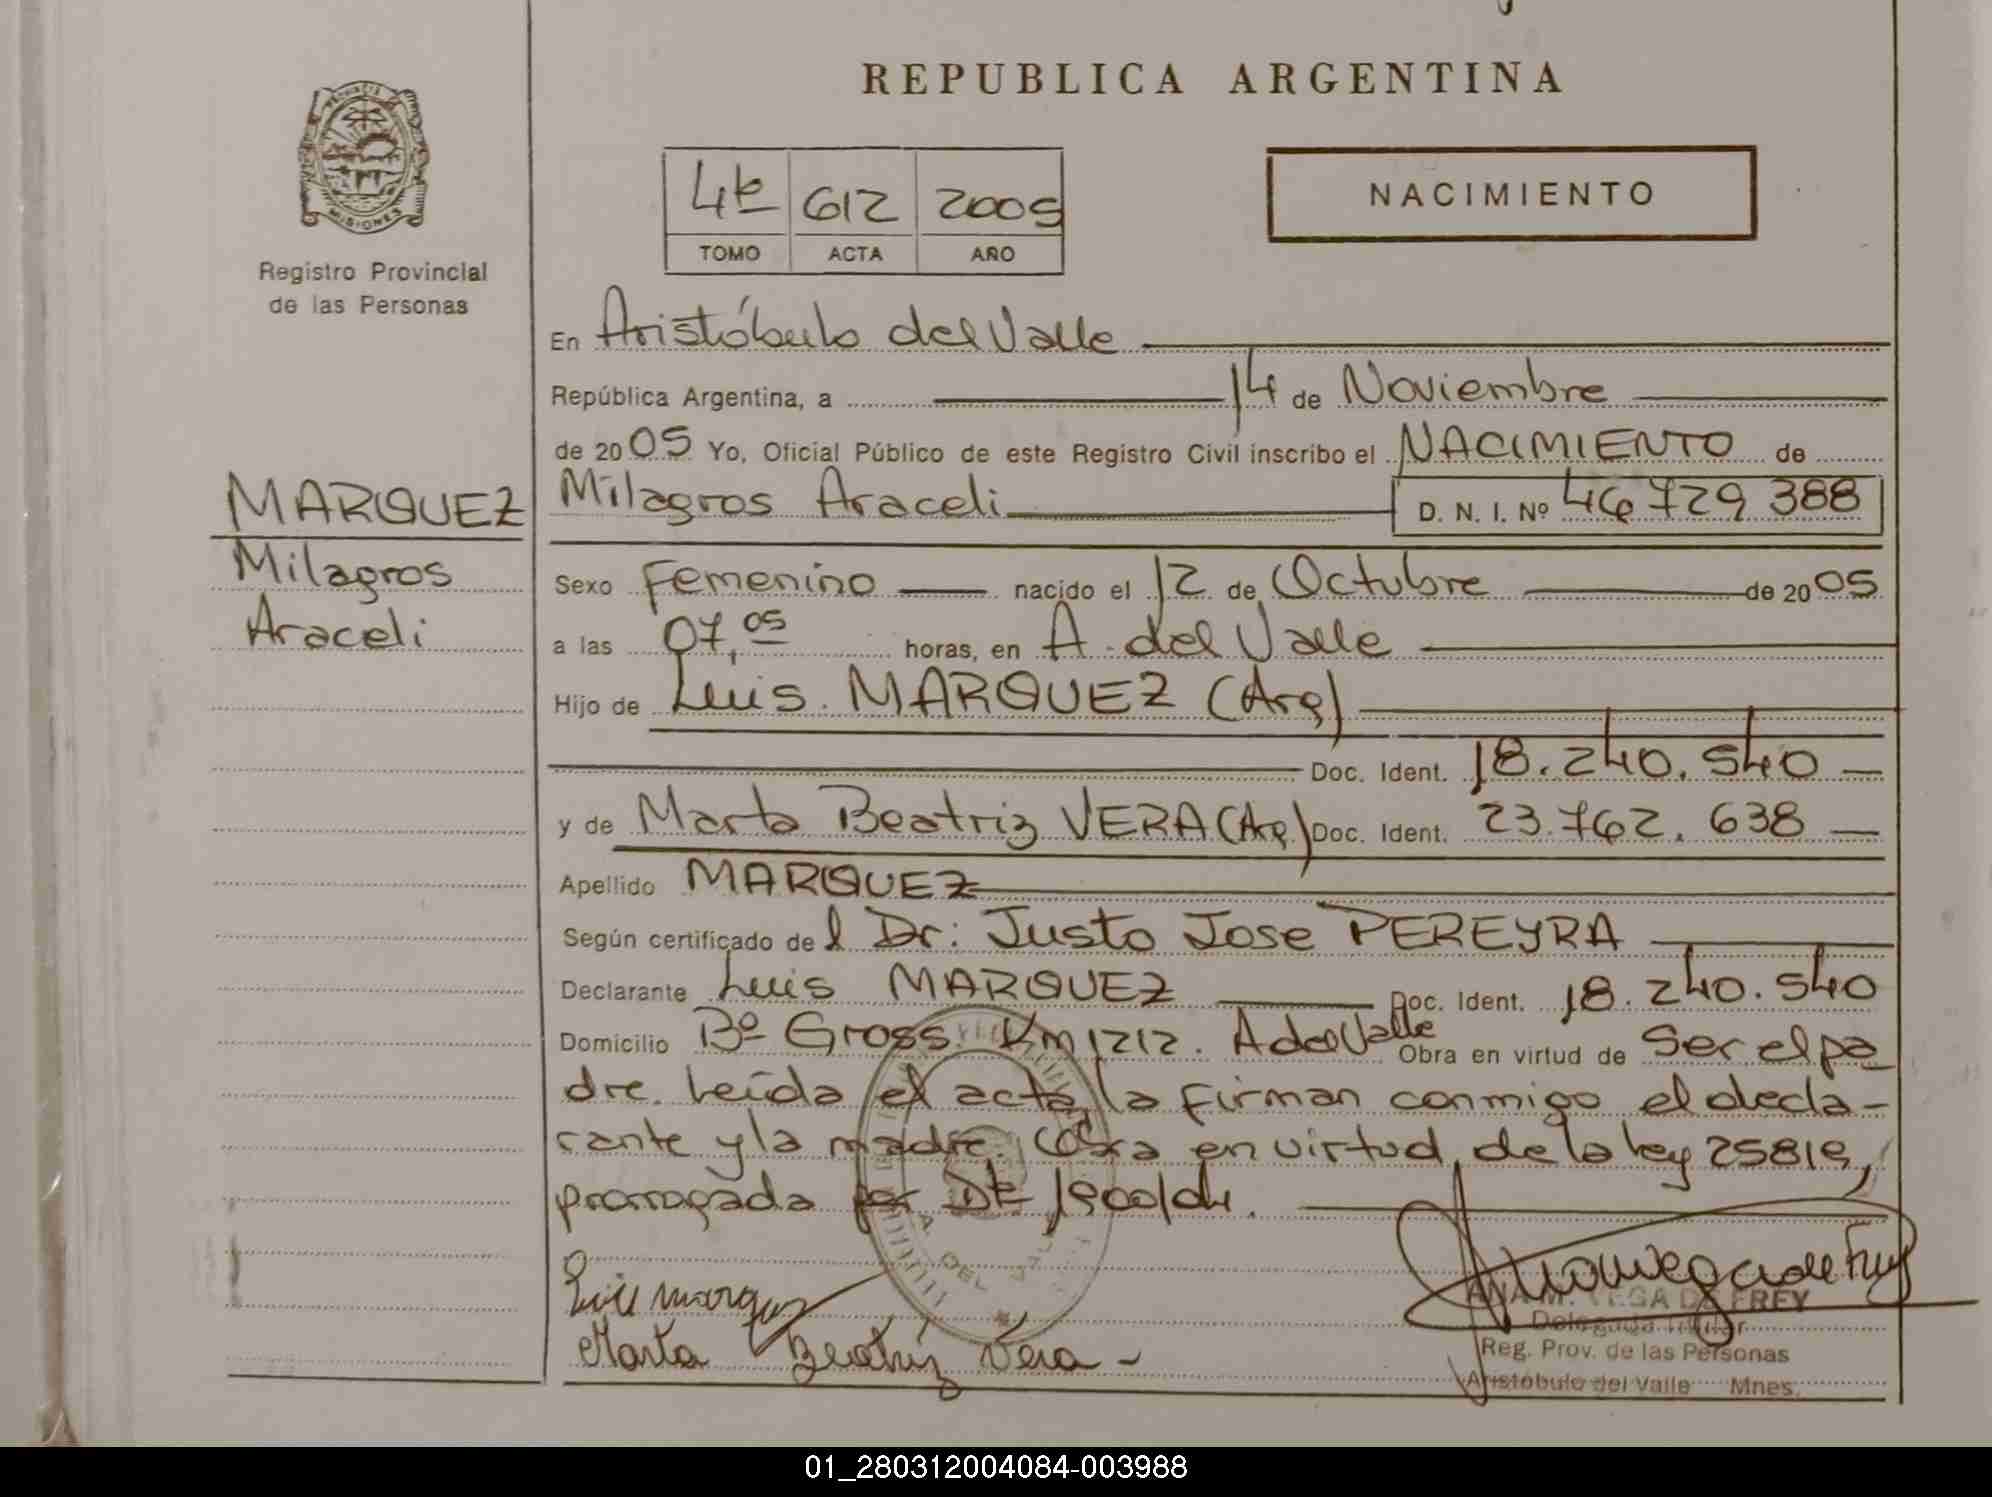 REPUBLICA ARGENTINA
PROVINCIA DE
MISIONES
Registro Provincial
de las Personas
4t 612 2005
TOMO ACTA AÑO
NACIMIENTO
En Aristóbulo del Valle
República Argentina, a 14 de Noviembre
de 2005 Yo, Oficial Público de este Registro Civil inscribo el NACIMIENTO de
MARQUEZ
Milagros
Araceli
Milagros Araceli D. N. I. Nº 46729388
Sexo Femenino nacido el 12 de Octubre de 2005
a las 07,05 horas, en A. del Valle
Hijo de Luis MARQUEZ (Arg)
Doc. Ident. 18.240.540
y de Marta Beatriz VERA (Arg) Doc. Ident. 23.762.638
Apellido MARQUEZ
Según certificado del Dr: Justo Jose PEREYRA
Declarante Luis MARQUEZ Doc. Ident. 18.240.540
Domicilio Bº Gross Km 1212. A del Valle Obra en virtud de ser el pa
dre. Leída el acta, la firman conmigo el decla-
rante y la madre. Obra en virtud de la ley 25819,
prorrogada por
Luis marquez
Marta Beatriz Vera -
ANA M. VEGA DE FREY
Delegada Titular
Reg. Prov. de las Personas
Aristóbulo del Valle Mnes.
01_280312004084-003988